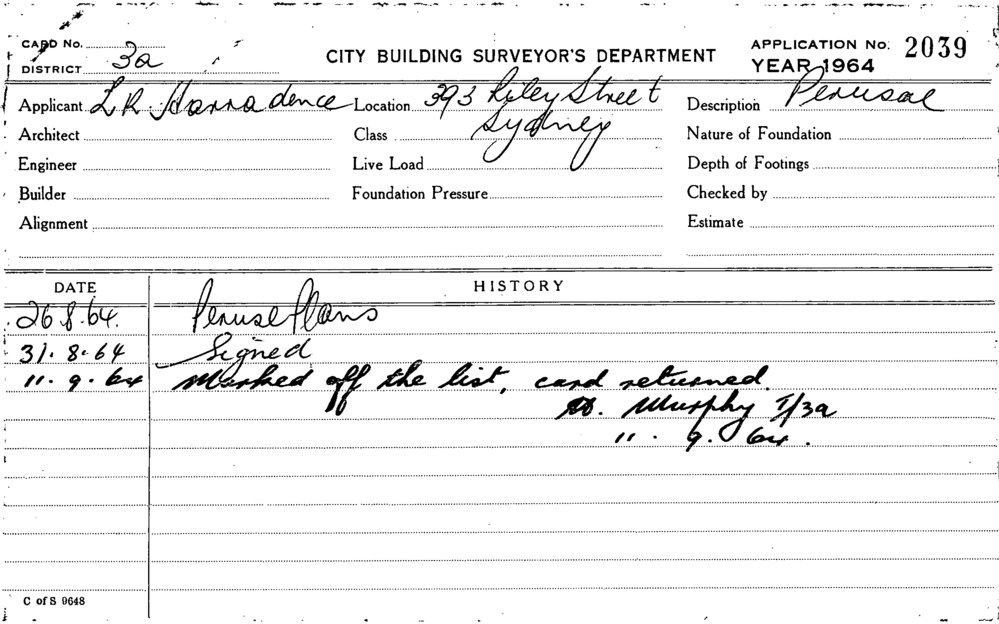 CARD No.
DISTRICT 3a
CITY BUILDING SURVEYOR'S DEPARTMENT
APPLICATION No. 2039
YEAR 1964
Applicant L R. Harradence Location 393 Riley Street Description Perusal
Architect Class Sydney Nature of Foundation
Engineer Live Load Depth of Footings
Builder Foundation Pressure Checked by
Alignment Estimate
DATE HISTORY
26.8.64. Peruse Plans
31.8.64 Signed
11.9.64 Marked off the list, card returned.
Murphy I/3a
11.9.64.
C of S 9648